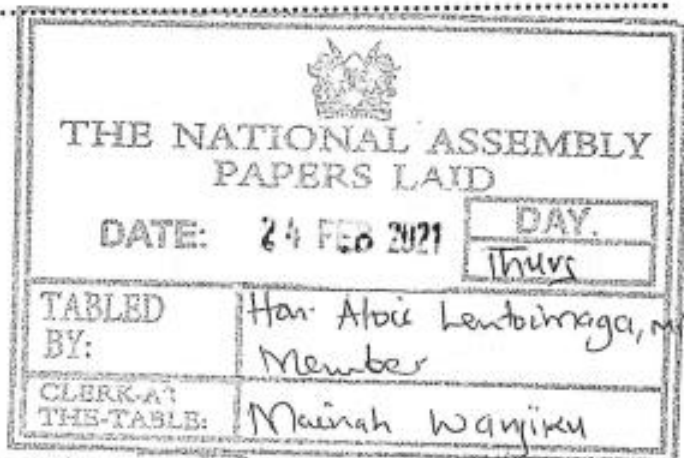 THE NATIONAL ASSEMBLY
PAPERS LAID
DATE: 24 FEB 2021
DAY.
Thurs
TABLED BY:
Hon. Lentoimaga, MP
Member
CLERK-AT THE-TABLE:
Mainah Wanjiku